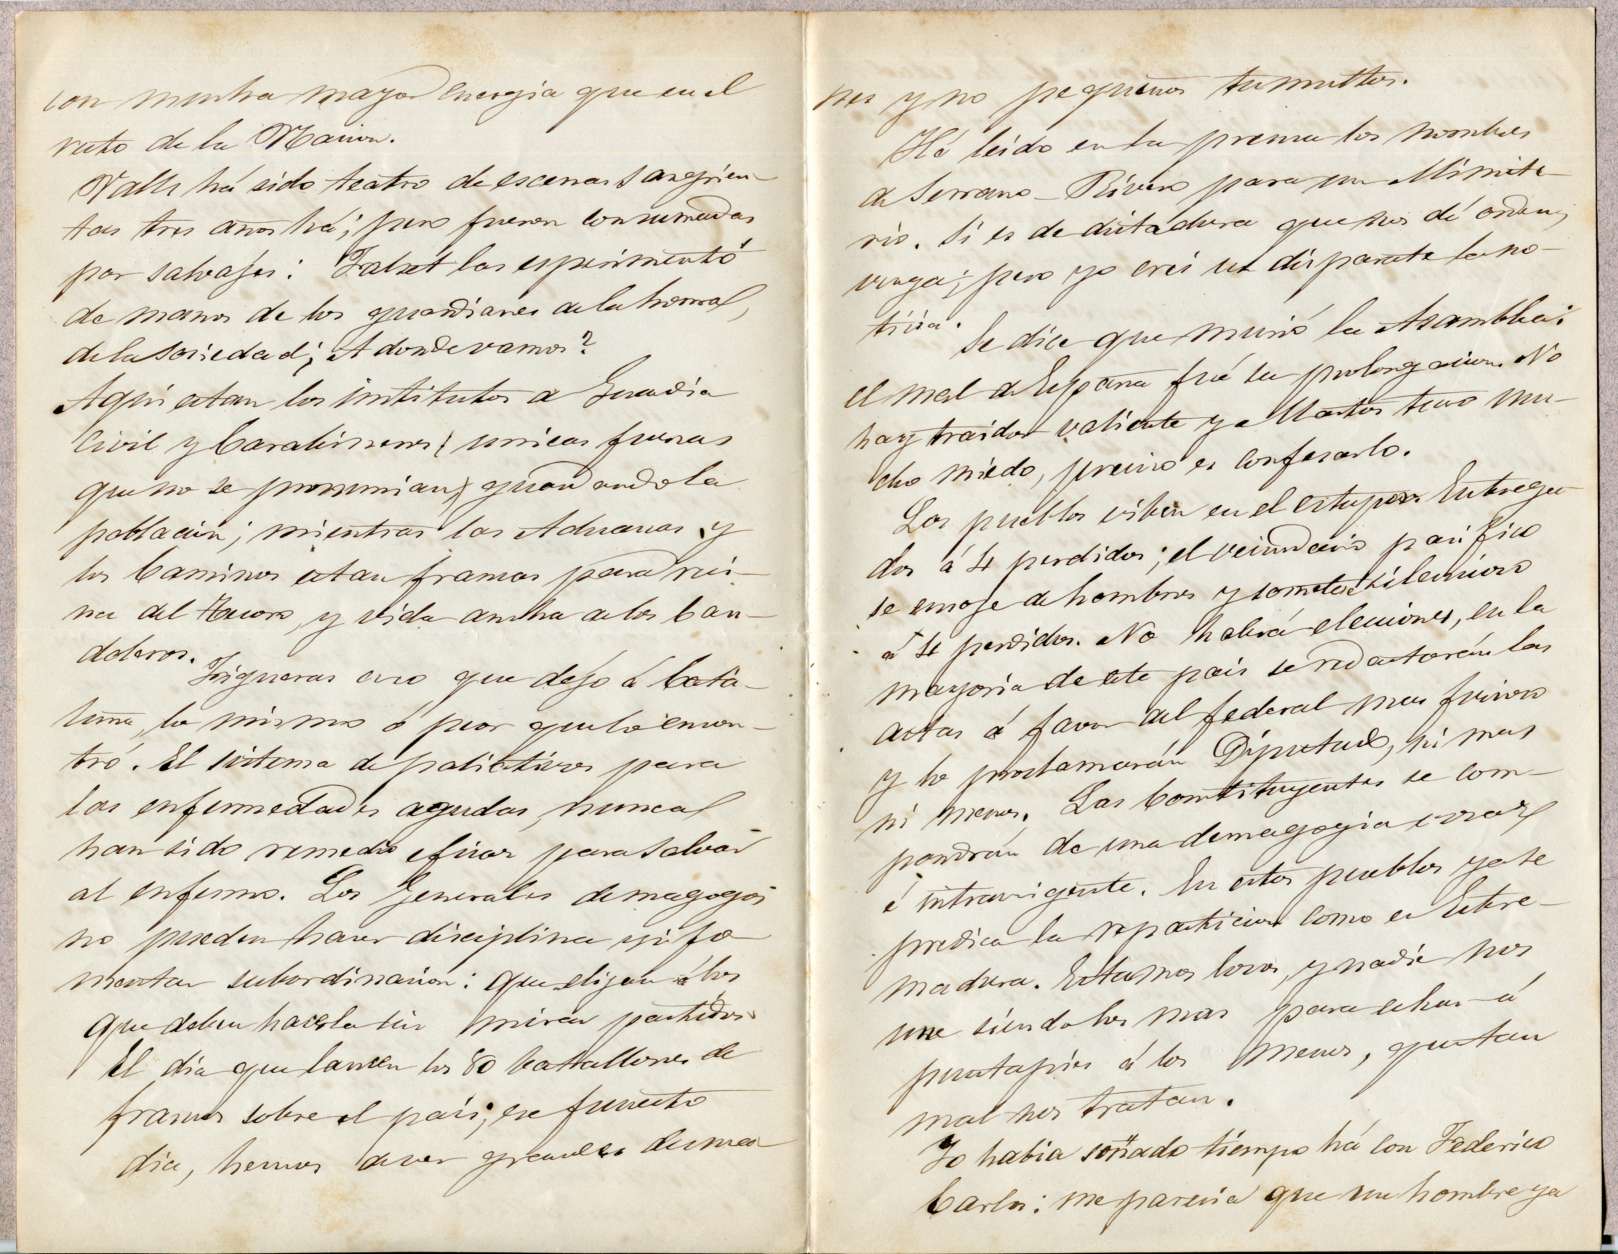 con mucha mayor energia que en el
resto de la Nacion.
Valls há sido teatro de escenas sangrien-
tas tres años há; pero fueron consumadas
por salvajes: Falset las esperimentó
de manos de los guardianes de la honra,
de la sociedad; ¿A donde vamos?
Aqui estan los institutos de Guardia
Civil y Carabineros (unicas fuerzas
que no se pronuncian) guardando la
poblacion; mientras las Aduanas y
los Caminos estan francas para rui-
na del Tesoro, y vida ancha de los ban-
doleros.
Figueras creo que dejó á Cata-
luña, lo mismo ó peor que la encon-
tró. El sistema de paliativos para
las enfermedades agudas, nunca
han sido remedio eficaz para salvar
al enfermo. Los Generales demagogos
no pueden hacer disciplina ni fo-
mentar subordinacion: que elijan á los
que deben hacerla sin mirar partidos.
El dia que lancen los 80 batallones de
francos sobre el país; ese funesto
dia, hemos de ver grandes desma-
nes y no pequeños tumultos.
Hé leido en la prensa los nombres
de Serrano-Rivero para un Ministe-
rio. Si es de dictadura que nos dé orden,
venga; pero yo creí un disparate la no-
ticia.
Se dice que murió la Asamblea:
el mal de España fué su prolongacion. No
hay traidor valiente y Martos tuvo mu-
cho miedo, preciso es confesarlo.
Los pueblos viben en el estupor. Entrega-
dos á 4 perdidos; el vecindario pacifico
se encoje de hombros y somete silencioso
á 4 perdidos. No habrá elecciones, en la
mayoria de este pais se redactarán las
actas á favor del federal mas furioso
y lo proclamarán Diputado, ni mas
ni menos. Las Constituyentes se com-
pondrán de una demagogia
é intransigente. En estos pueblos ya se
predica la reparticion como en Estre-
madura. Estamos locos, y nadie nos
une siendo los mas para echar á
puntapies á los menos, que tan
mal nos tratan.
Yo habia soñado tiempo há con Federico
Carlos: me parecia que un hombre ya